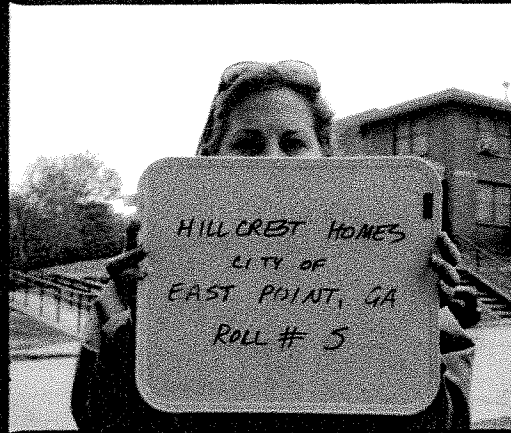 HILLCREST HOMES
CITY OF
EAST POINT, GA
ROLL # 5